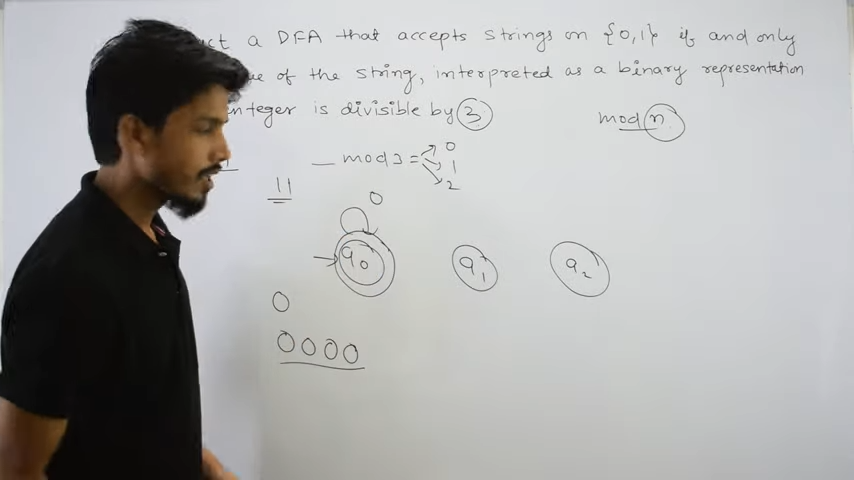 a DFA that accepts strings on {0,1} if and only
of the string, interpreted as a binary representation
integer is divisible by 3
mod n
— mod 3 = 0
1
2
11
0
q0 q1 q2
0
0000